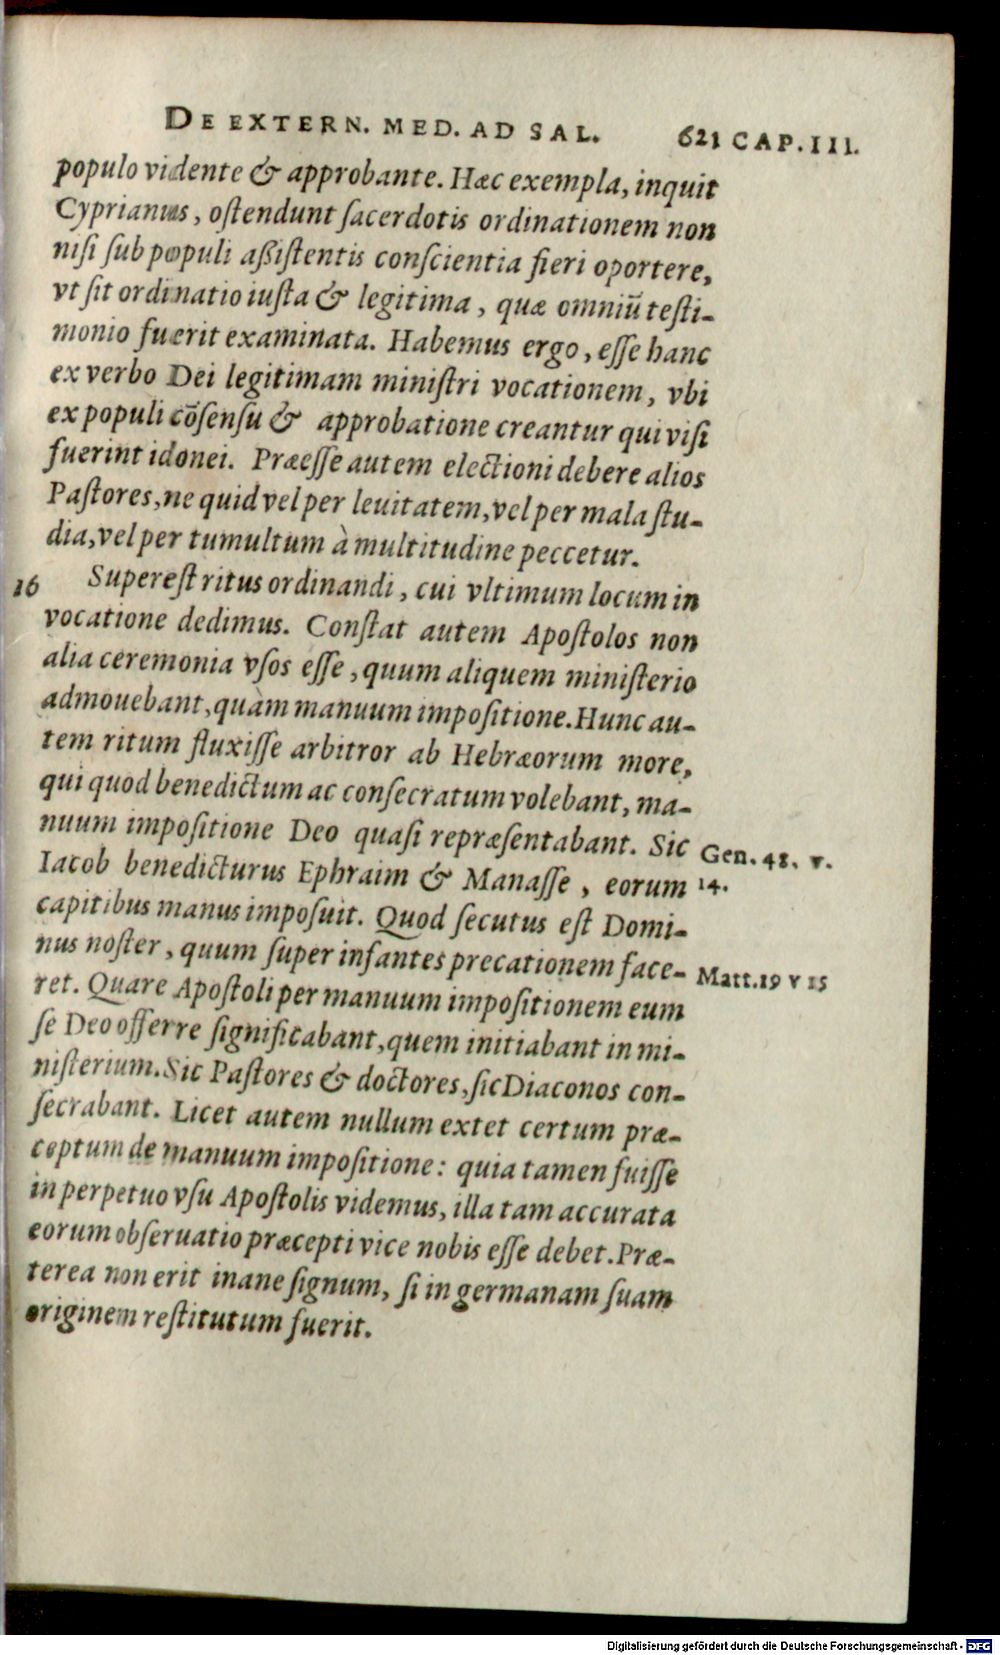 DE EXTERN. MED. AD SAL. 621 CAP. III.
populo vidente & approbante. Hæc exempla, inquit
Cyprianus, oſtendunt ſacerdotis ordinationem non
niſi ſub populi aßiſtentis conſcientia fieri oportere,
vt ſit ordinatio iuſta & legitima, quæ omniũ teſti-
monio fuerit examinata. Habemus ergo, eſſe hanc
ex verbo Dei legitimam miniſtri vocationem, vbi
ex populi cõſenſu & approbatione creantur qui viſi
fuerint idonei. Præeſſe autem electioni debere alios
Paſtores, ne quid vel per leuitatem, vel per mala ſtu-
dia, vel per tumultum à multitudine peccetur.
16 Supereſt ritus ordinandi, cui vltimum locum in
vocatione dedimus. Conſtat autem Apoſtolos non
alia ceremonia vſos eſſe, quum aliquem miniſterio
admouebant, quàm manuum impoſitione. Hunc au-
tem ritum fluxiſſe arbitror ab Hebræorum more,
qui quod benedictum ac conſecratum volebant, ma-
nuum impoſitione Deo quaſi repræſentabant. Sic Gen. 48. v.
Iacob benedicturus Ephraim & Manaſſe, eorum 14.
capitibus manus impoſuit. Quod ſecutus eſt Domi-
nus noſter, quum ſuper infantes precationem face- Matt. 19 v 15
ret. Quare Apoſtoli per manuum impoſitionem eum
ſe Deo offerre ſignificabant, quem initiabant in mi-
niſterium. Sic Paſtores & doctores, ſic Diaconos con-
ſecrabant. Licet autem nullum extet certum præ-
ceptum de manuum impoſitione: quia tamen fuiſſe
in perpetuo vſu Apoſtolis videmus, illa tam accurata
eorum obſeruatio præcepti vice nobis eſſe debet. Præ-
terea non erit inane ſignum, ſi in germanam ſuam
originem reſtitutum fuerit.
Digitalisierung gefördert durch die Deutsche Forschungsgemeinschaft - DFG